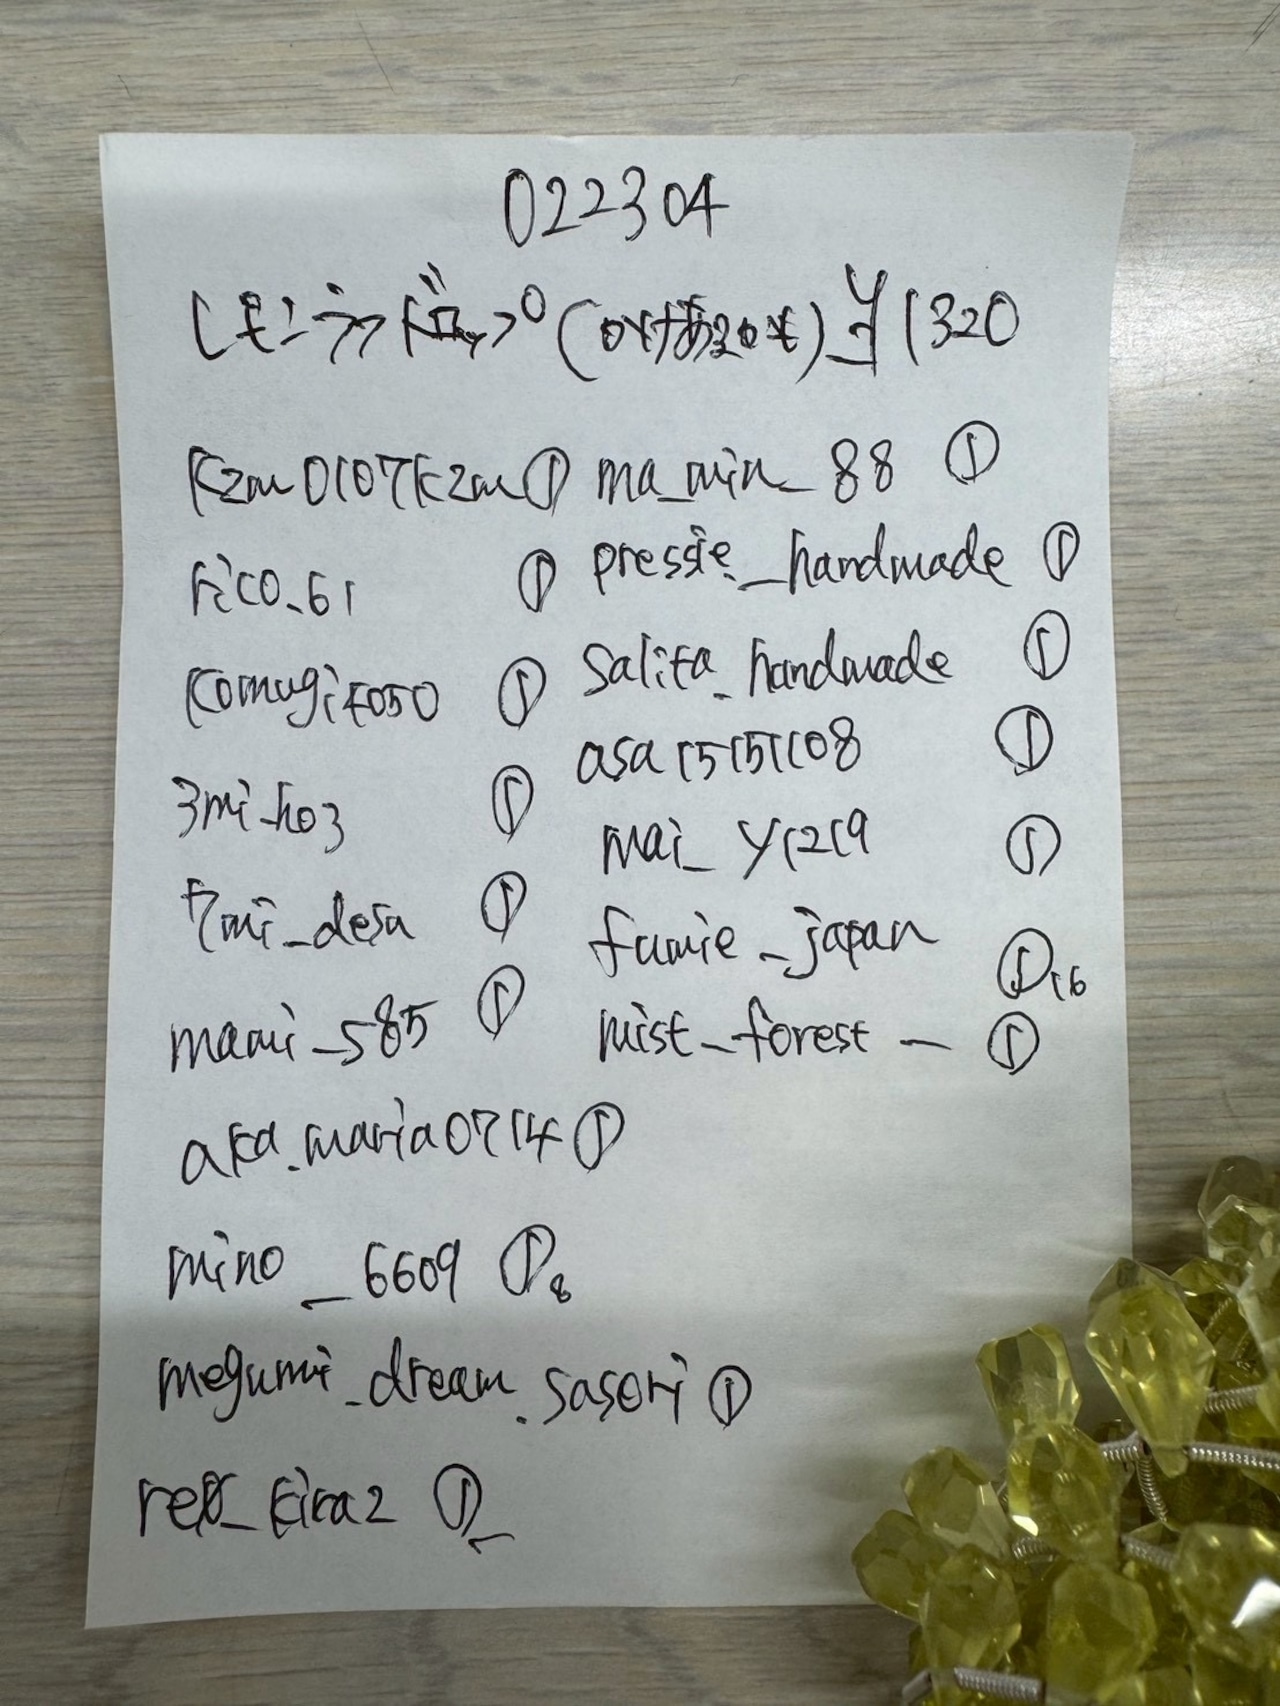 022304
レモンラフドロップ ¥1320
kzm0107kzm ①
rico_61 ①
komugi4050 ①
3mi_ho3 ①
7mi_desu ①
mami_s85 ①
aka.maria0714 ①
mino_6609 ① 8
megumi_dream.sasori ①
_kira2 ①
ma_min_88 ①
pressie._handmade ①
salita_handmade ①
asa15151108 ①
mai_y1219 ①
fumie_japan ① 16
mist_forest_ ①